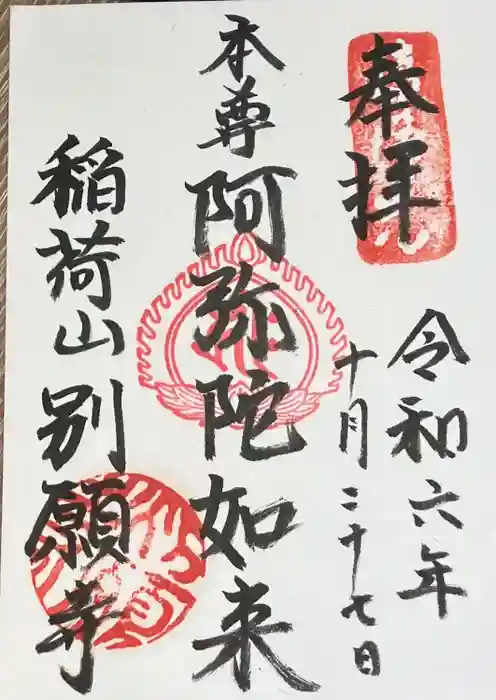 奉拝
令和六年
十月二十七日
本尊 阿弥陀如来
稲荷山 別願寺